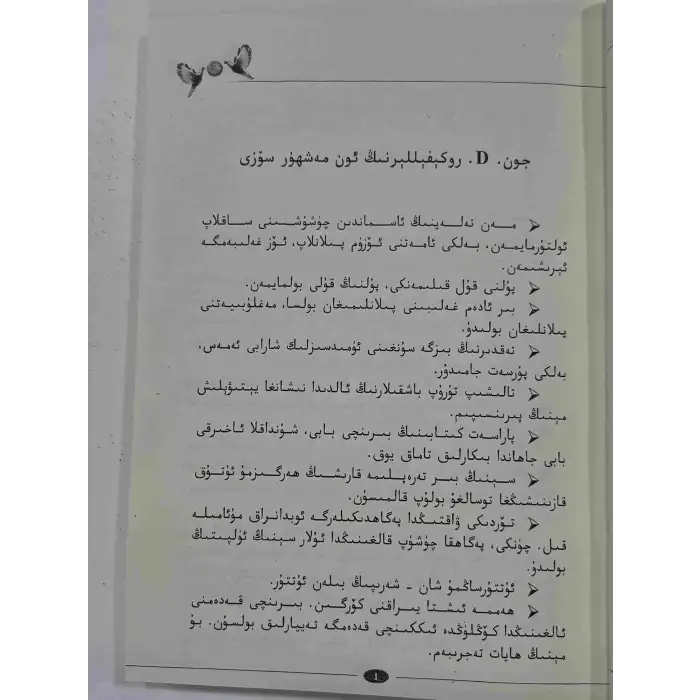 جون. D. روكېفېللېرنىڭ ئون مەشھۇر سۆزى
➢ مــەن تەلــەينىڭ ئاســماندىن چۈشۈشــىنى ســاقلاپ
ئولتۇرمايمەن، بـەلكى ئامـەتنى ئـۆزۈم پىـلانلاپ، ئـۆز غـەلىبەمگە
ئېرىشىمەن.
➢ پۇلنى قۇل قىلىمەنكى، پۇلنىڭ قۇلى بولمايمەن.
➢ بىر ئادەم غەلىبىنى پىلانلىمىغان بولسا، مەغلۇبىيەتنى
پىلانلىغان بولىدۇ.
➢ تەقدىرنىڭ بىزگە سۇنغىنى ئۈمىدسىزلىك شارابى ئەمەس،
بەلكى پۇرسەت جامىدۇر.
➢ تالىشىپ تۇرۇپ باشقىلارنىڭ ئالدىدا نىشانغا يېتىۋېلىش
مېنىڭ پىرىنسىپىم.
➢ پاراسەت كىتابىنىڭ بىرىنچى بابى، شۇنداقلا ئاخىرقى
بابى جاھاندا بىكارلىق تاماق يوق.
➢ سـېنىڭ بىـر تەرەپلىـمە قارىشـىڭ ھەرگىـزمۇ ئۇتـۇق
قازىنىشىڭغا توسالغۇ بولۇپ قالمىسۇن.
➢ تـۆردىكى ۋاقتىـڭدا پەگاھدىكىلەرگە ئوبدانـراق مۇئامىـلە
قىل. چۈنكى، پەگاھقا چۈشۈپ قالغىنىڭدا ئۇلار سېنىڭ ئۈلپىتىڭ
بولىدۇ.
➢ ئۇتتۇرساڭمۇ شان - شەرىپىڭ بىلەن ئۇتتۇر.
➢ ھەممە ئىشتا يىراقنى كۆرگىن. بىرىنچى قەدەمنى
ئالغىنىڭدا كۆڭلۈڭدە ئىككىنچى قەدەمگە تەييارلىق بولسۇن. بۇ
مېنىڭ ھايات تەجرىبەم.
1